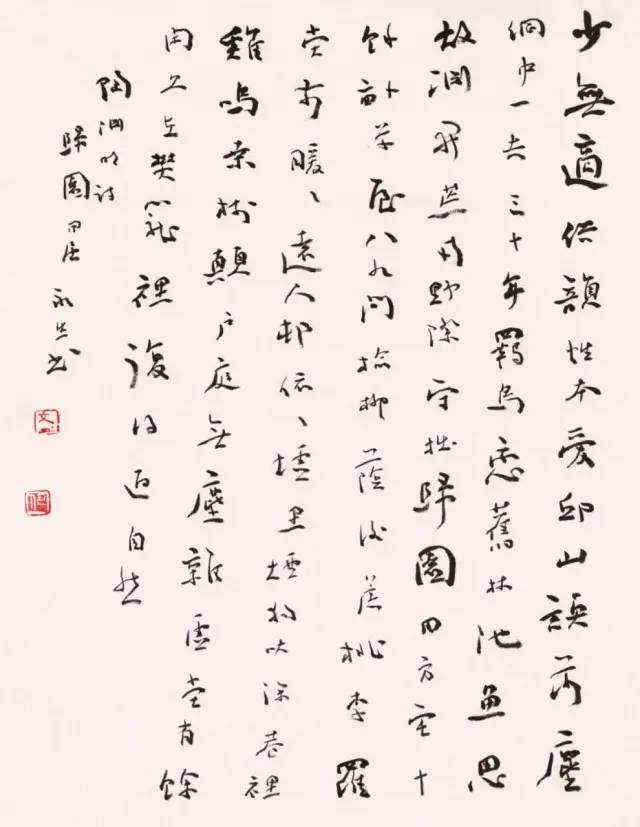 少無適俗韻性本愛邱山誤落塵
網中一去三十年羈鳥戀舊林池魚思
故淵開荒南野際守拙歸園田方宅十
餘畝草屋八九間榆柳蔭後簷桃李羅
堂前暖〻遠人邨依〻墟里煙狗吠深巷裡
雞鳴桑樹顛戶庭無塵雜虛堂有餘
閑久在樊籠裡復得返自然
陶淵明詩
歸園田居